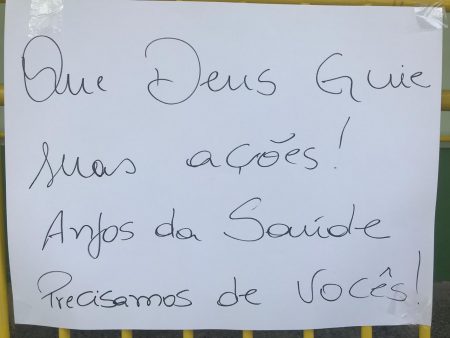 Que Deus Guie
suas ações!
Anjos da Saúde
Precisamos de Vocês!